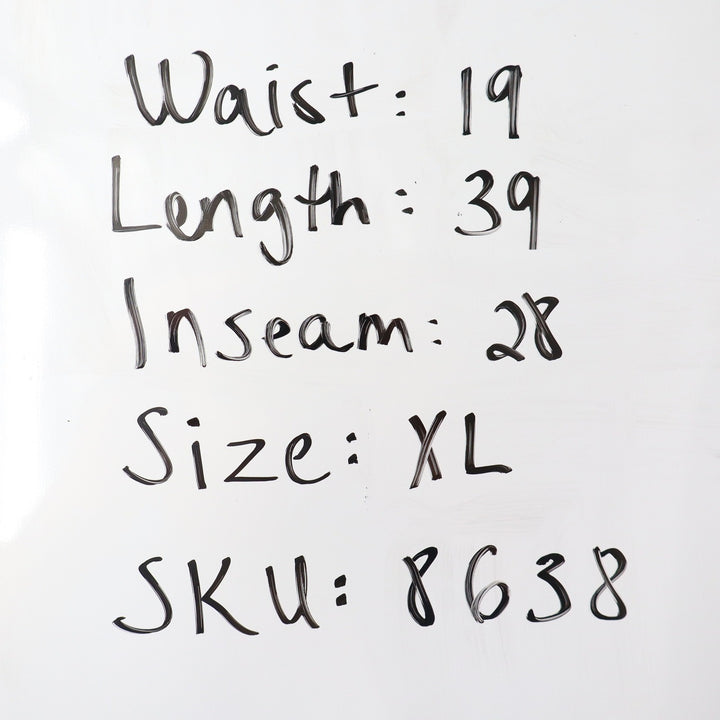 Waist: 19
Length: 39
Inseam: 28
Size: XL
SKU: 8638